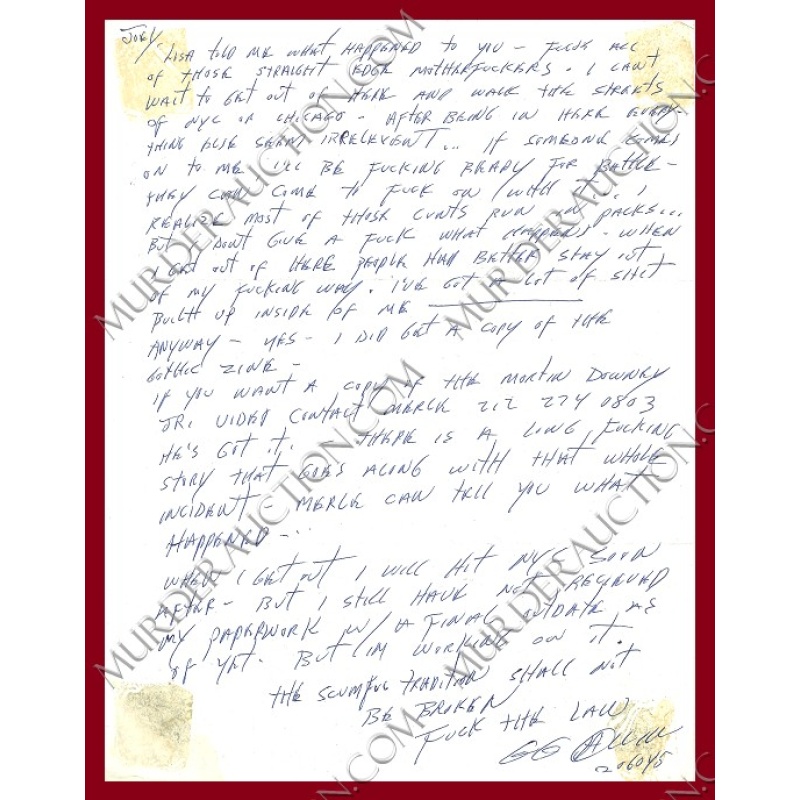 JOEY
LISA TOLD ME WHAT HAPPENED TO YOU - FUCK ALL
OF THOSE STRAIGHT EDGE MOTHERFUCKERS. I CAN'T
WAIT TO GET OUT OF HERE AND WALK THE STREETS
OF NYC OR CHICAGO - AFTER BEING IN HERE EVERY-
THING ELSE SEEMS IRRELEVENT... IF SOMEONE COMES
ON TO ME I'LL BE FUCKING READY FOR BATTLE -
THEY CAN COME TO FUCK ON WITH IT. I
REALIZE MOST OF THOSE CUNTS RUN IN PACKS...
BUT I DON'T GIVE A FUCK WHAT HAPPENS - WHEN
I GET OUT OF HERE PEOPLE HAD BETTER STAY OUT
OF MY FUCKING WAY. I'VE GOT A LOT OF SHIT
BUILT UP INSIDE OF ME
ANYWAY - YES - I DID GET A COPY OF THE
GOTHIC ZINE -
IF YOU WANT A COPY OF THE MORTIN DOWNEY
JR. VIDEO CONTACT MERLE 212 274 0803
HE'S GOT IT. - THERE IS A LONG FUCKING
STORY THAT GOES ALONG WITH THAT WHOLE
INCIDENT - MERLE CAN TELL YOU WHAT
HAPPENED - ..
WHEN I GET OUT I WILL HIT NYC SOON
AFTER - BUT I STILL HAVE NOT RECIEVED
MY PAPERWORK W/ A FINAL OUTDATE AS
OF YET. BUT I'M WORKING ON IT.
THE SCUMFUC TRADITION SHALL NOT
BE BROKEN
FUCK THE LAW
GG Allin
206045
MURDERAUCTION.COM